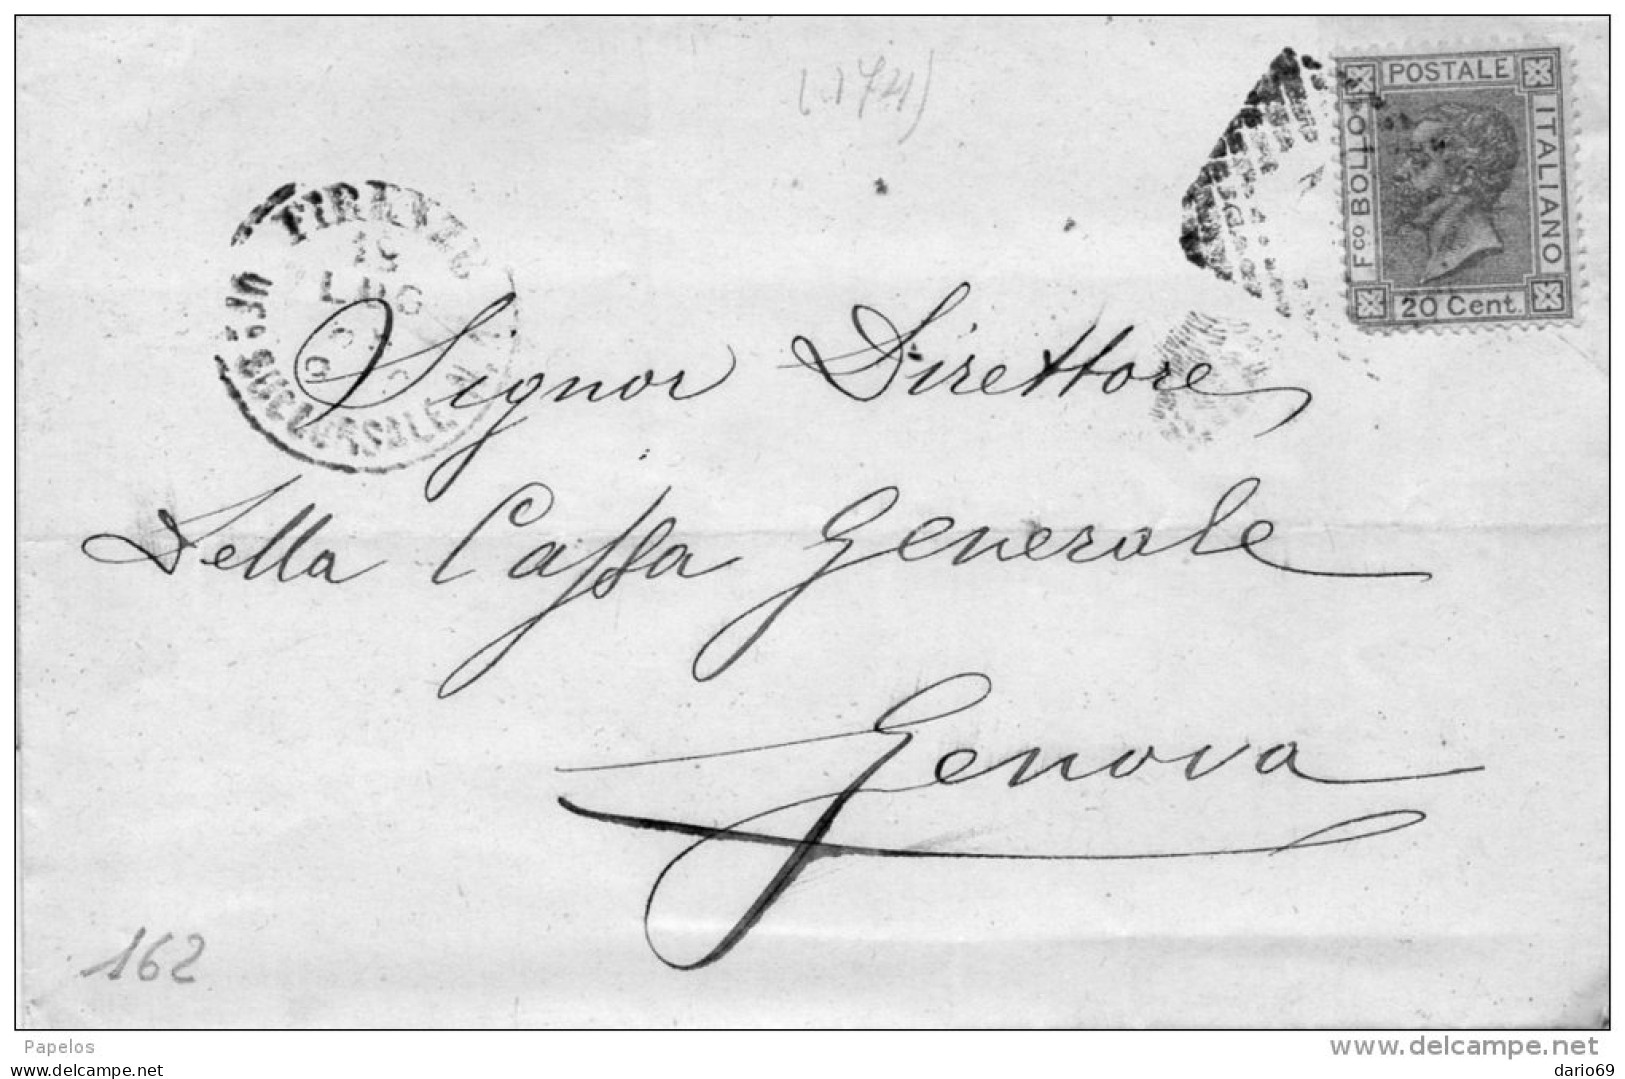 (1741)
POSTALE
Fco BOLLO
ITALIANO
20 Cent.
FIRENZE
19
LUG
SUCCURSALE
Signor Direttore
Della Cassa Generale
Genova
162
Papelos
www.delcampe.net
dario69